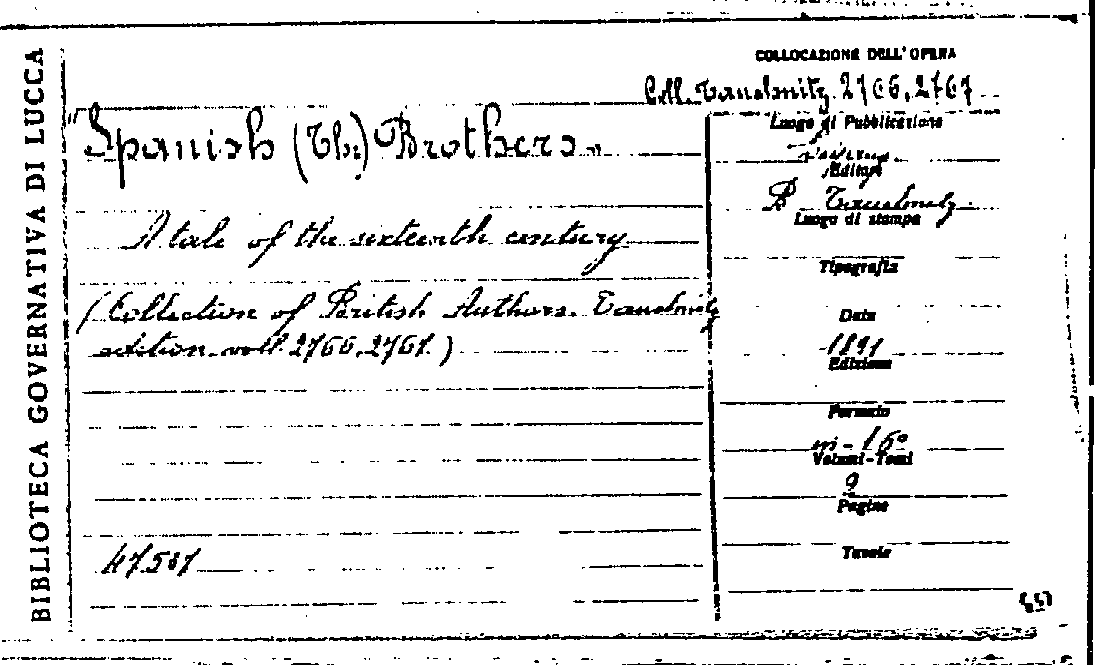 BIBLIOTECA GOVERNATIVA DI LUCCA
COLLOCAZIONE DELL' OPERA
Coll. Tauchnitz. 2766, 2767
"Spanish (The) Brothers."
A tale of the sixteenth century
(Collection of British Authors. Tauchnitz
edition. voll. 2766, 2767.)
Luogo di Pubblicazione
Editore
B Tauchnitz.
Luogo di stampa
Tipografia
Data
1891
Edizione
Formato
in-16°
Volumi-Tomi
Pagine
Tavole